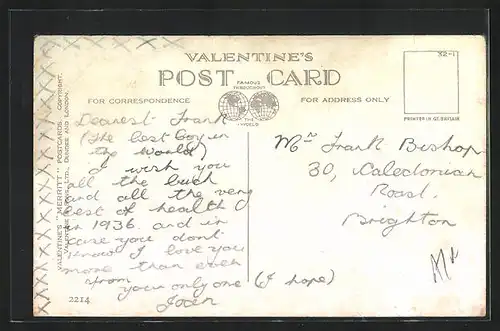 VALENTINE'S
POST CARD
FAMOUS
THROUGHOUT
THE
WORLD
FOR CORRESPONDENCE
FOR ADDRESS ONLY
32-1
PRINTED IN GT. BRITAIN
VALENTINE'S "MERRITT" POSTCARDS. COPYRIGHT.
VALENTINE & SONS, LTD., DUNDEE AND LONDON.
Dearest Frank
(The best boy in
the world)
I wish you
all the luck
and all the very
best of health
in 1936. and in
case you dont
know I love you
more than ever
from
your only one (I hope)
Joan
Mr Frank Bishop
30, Caledonian
Road.
Brighton
2214